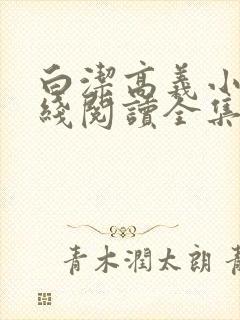 白潔高義小
綫閱讀全集
青木潤太朗 青